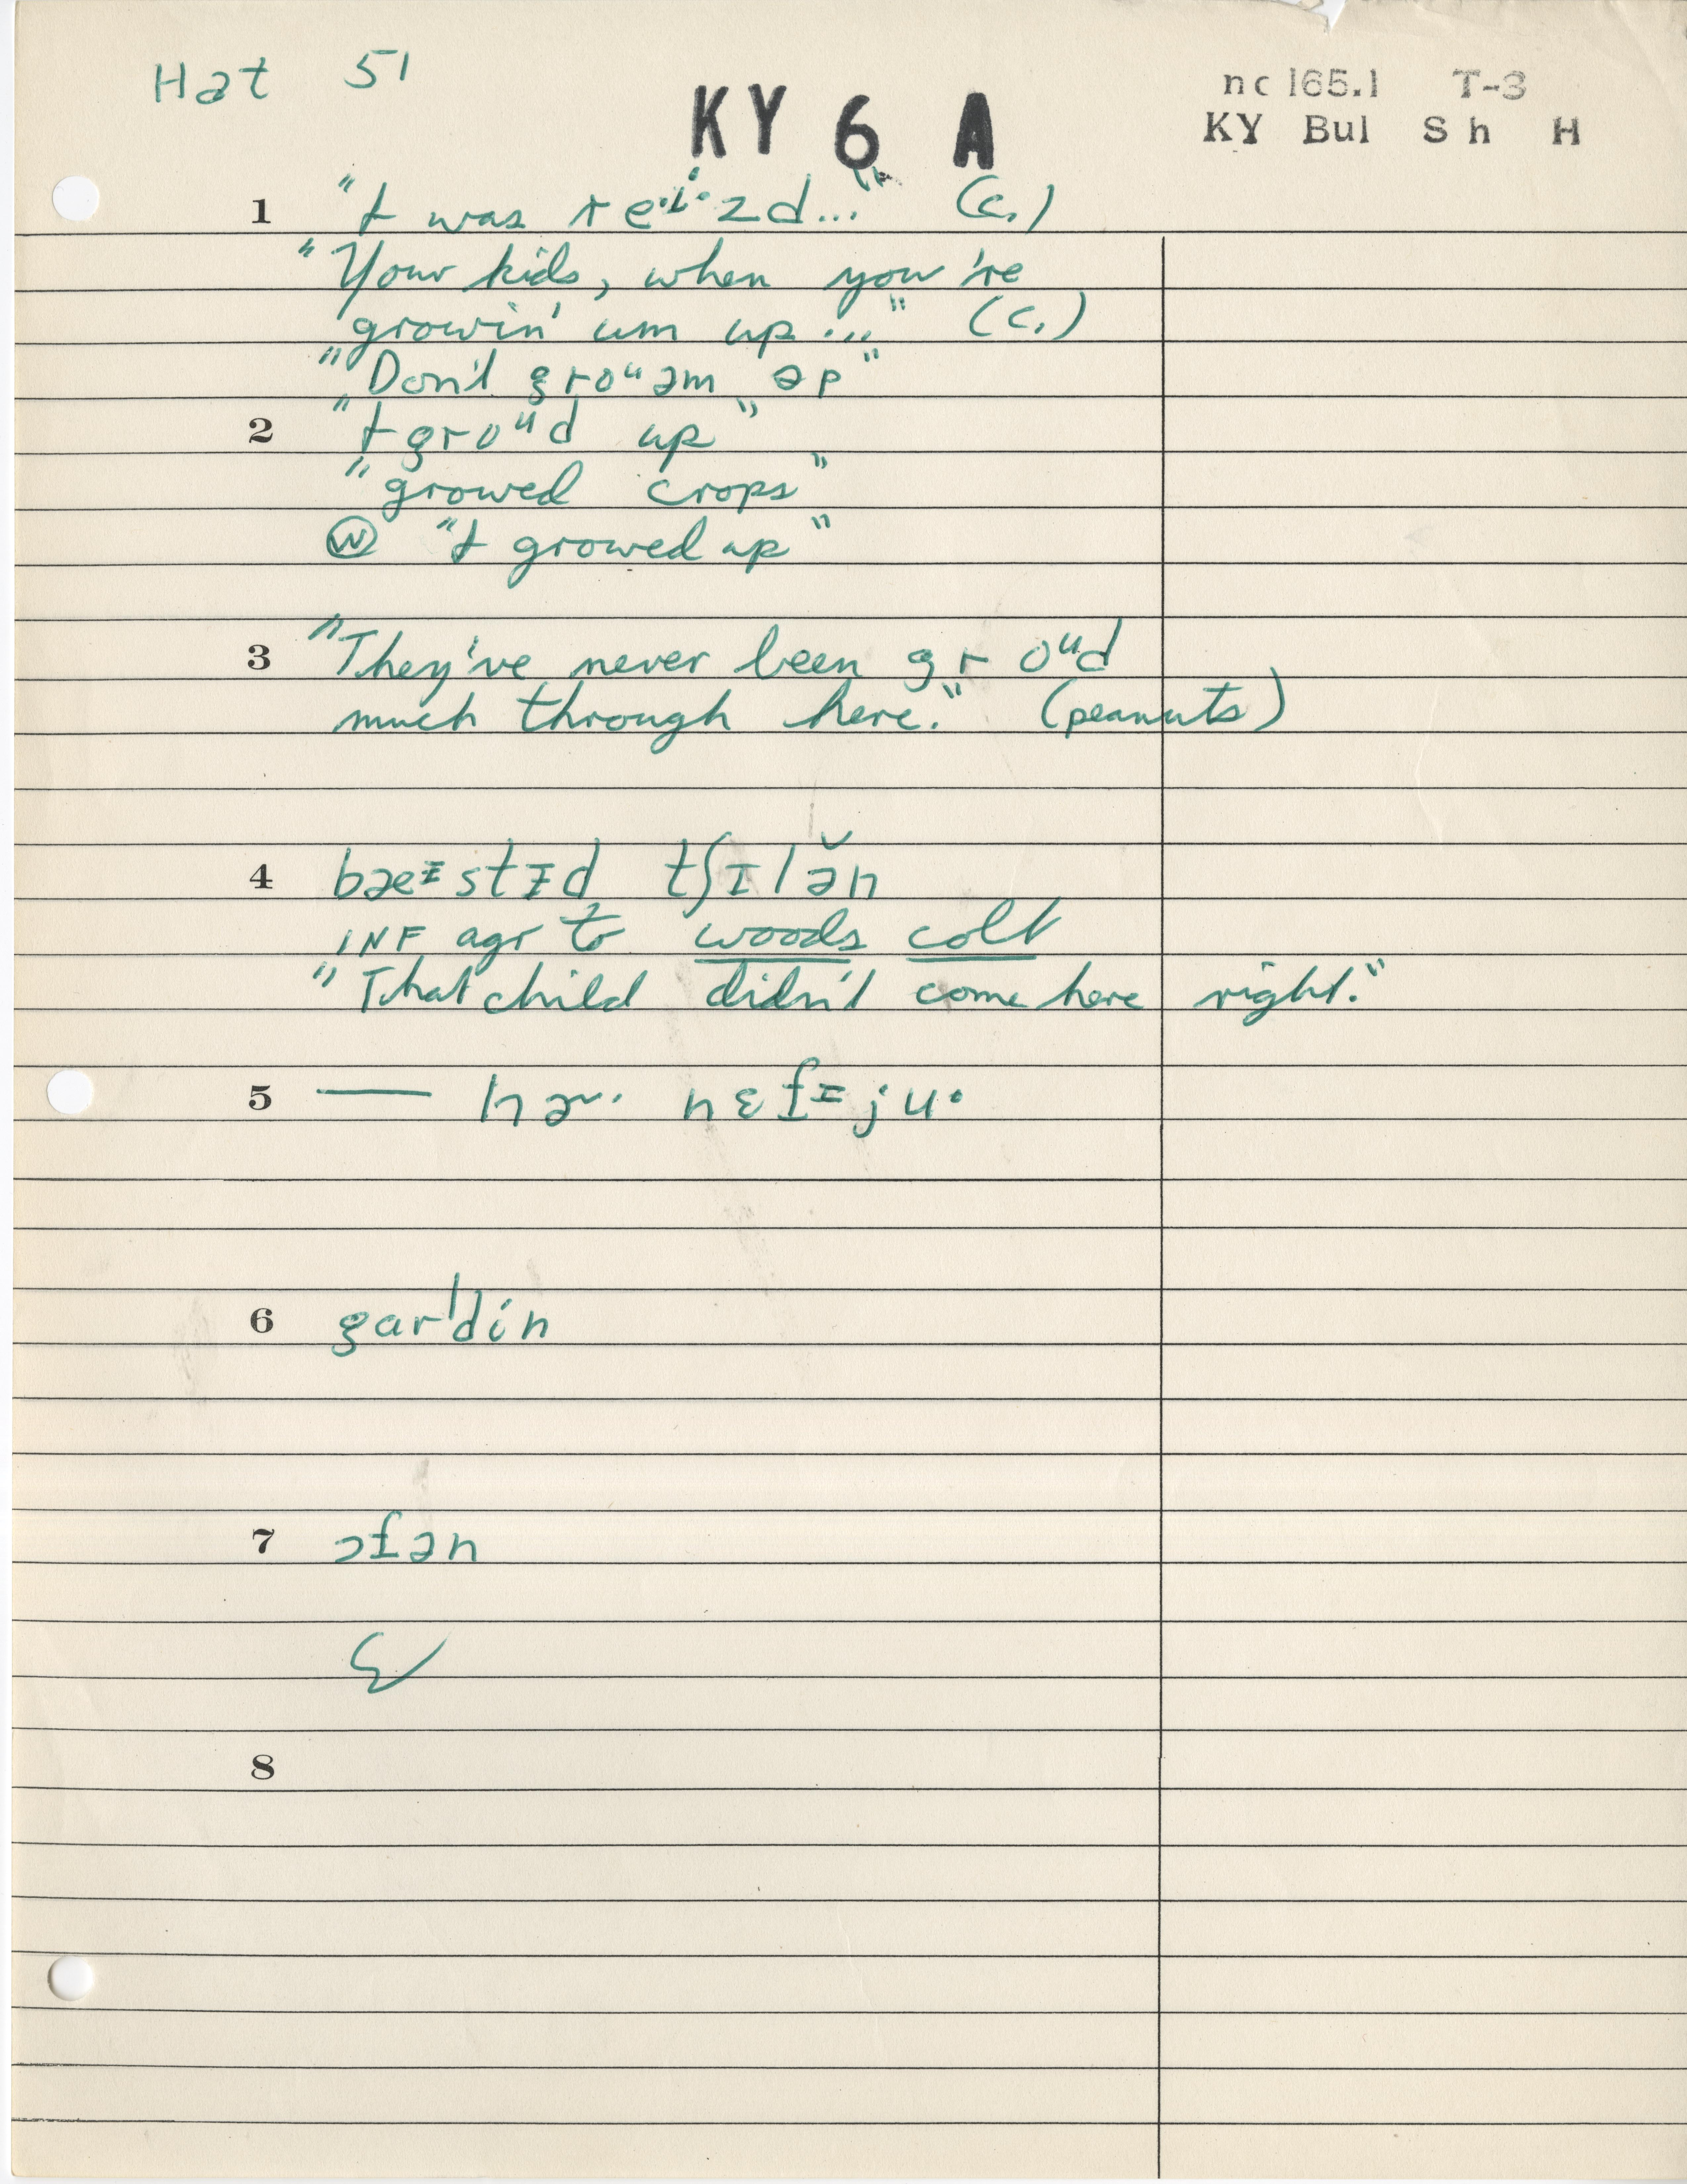 Hat 51
KY 6 A
nc 165.1 T-3
KY Bul Sh H
1 "I was reⁱ·zd..." (c.)
"Your kids, when you're
growin' um up..." (c.)
"Don't groᵘəm əp"
2 "I groᵘd up"
"growed crops"
Ⓦ "I growed up"
3 "They've never been groᵘd
much through here." (peanuts)
4 bæᵻstᵻd tʃɪlə̆n
INF agr to woods colt
"That child didn't come here right."
5 — nɛfᵻju·
6 garˈdín
7 ɔfən
8